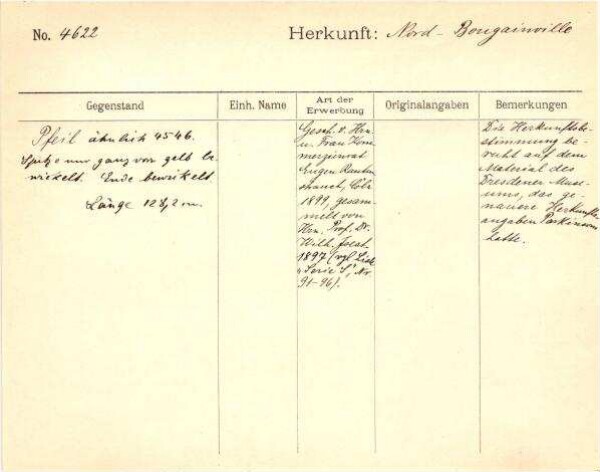 No. 4622
Herkunft: Nord-Bougainville
Gegenstand
Einh. Name
Art der Erwerbung
Originalangaben
Bemerkungen
Pfeil ähnlich 4546.
Spitze nur ganz vor gelb be-
wickelt. Ende bewickelt.
Länge 128,2 cm.
Gesch. v. Hrn.
u. Frau Kom-
merzienrat
Eugen Rauten-
strauch, Cöln
1899, gesam-
melt von
Hrn. Prof. Dr.
Wilh. Joest
1897 (vgl. Liste
"Serie S", Nr.
91-96).
Die Herkunftsbe-
stimmung be-
ruht auf dem
Material des
Dresdener Muse-
ums, das ge-
nauere Herkunfts-
angaben Parkinsons
hatte.